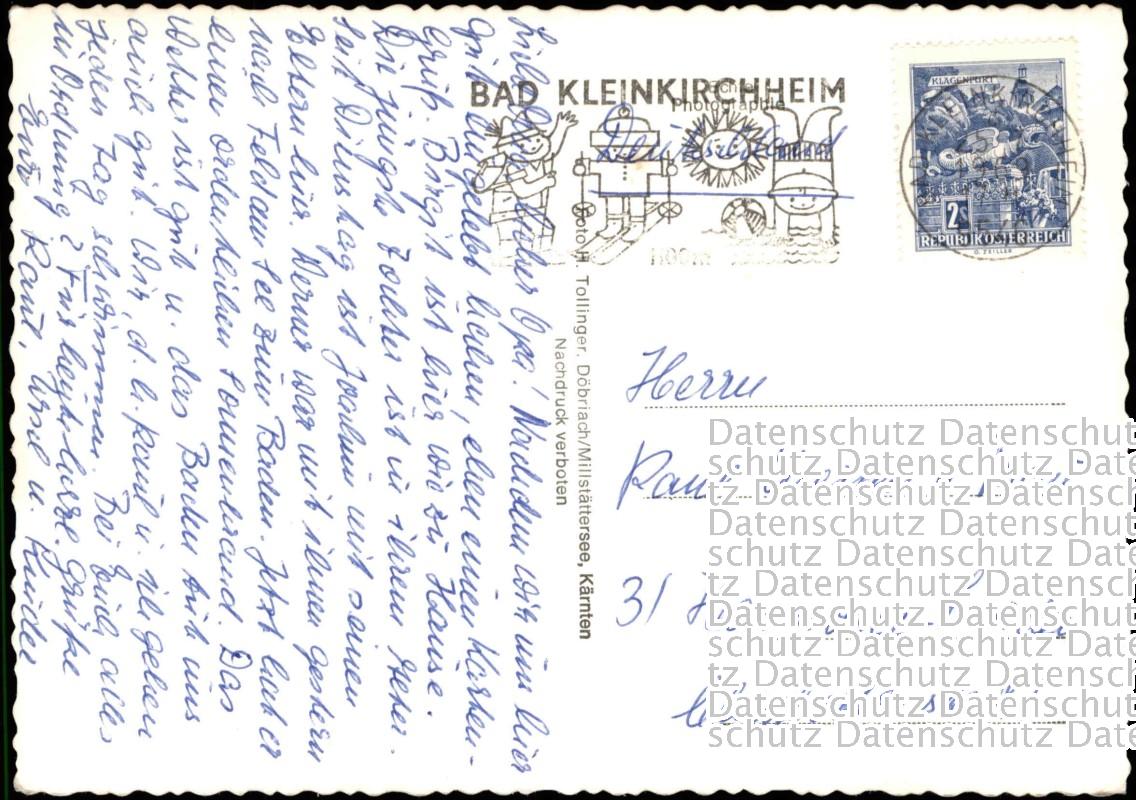 Liebe Oma, lieber Opa! Nachdem wir uns hier
gut eingelebt haben, eben einen Karten-
gruß. Birgit ist hier wie zu Hause.
Die jüngste Tochter ist in ihrem Alter.
Seit Dienstag ist Joachim mit seinen
Eltern hier. Werner war mit ihnen gestern
nach Feld am See zum Baden. Jetzt hat er
einen ordentlichen Sonnenbrand. Das
Wetter ist gut u. das Baden tut uns
auch gut. Wir, d. h. Ranit u. ich gehen
jeden Tag schwimmen. Bei Euch alles
in Ordnung? Für heute herzl. Grüße
Eure u. Kinder
BAD KLEINKIRCHHEIM
Photographie
Deutschland
1100m
KLAGENFURT
2 S
REPUBLIK ÖSTERREICH
Foto H. Tollinger, Döbriach/Millstättersee, Kärnten
Nachdruck verboten
Herrn
31
Datenschutz Datenschutz
schutz Datenschutz Date
tz Datenschutz Datensch
Datenschutz Datenschut
schutz Datenschutz Date
tz Datenschutz Datensch
Datenschutz Datenschut
schutz Datenschutz Date
tz Datenschutz Datensch
Datenschutz Datenschut
schutz Datenschutz Date